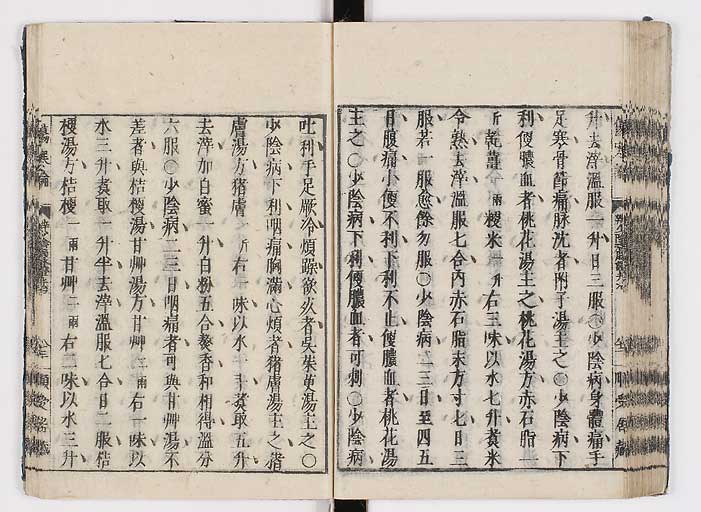 升去滓溫服一升日三服○少陰病身體痛手
足寒骨節痛脉沈者附子湯主之○少陰病下
利便膿血者桃花湯主之桃花湯方赤石脂一
斤乾薑一兩粳米一升右三味以水七升煑米
令熟去滓溫服七合內赤石脂末方寸七日三
服若一服愈餘勿服○少陰病二三日至四五
日腹痛小便不利下利不止便膿血者桃花湯
主之○少陰病下利便膿血者可刺○少陰病
吐利手足厥冷煩躁欲死者吳茱萸湯主之○
少陰病下利咽痛胸滿心煩者猪膚湯主之猪
膚湯方猪膚一斤右一味以水一斗煑取五升
去滓加白蜜一升白粉五合熬香和相得溫分
六服○少陰病二三日咽痛者可與甘艸湯不
差者與桔梗湯甘艸湯方甘艸二兩右一味以
水三升煑取一升半去滓溫服七合日二服桔
梗湯方桔梗一兩甘艸二兩右二味以水三升
傷寒論